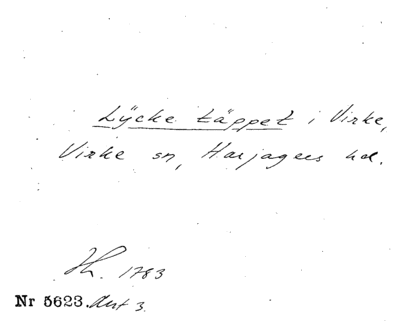 Lÿcke täppet i Virke,
Virke sn, Harjagers hd.
1783
Nr 5623. Akt 3.